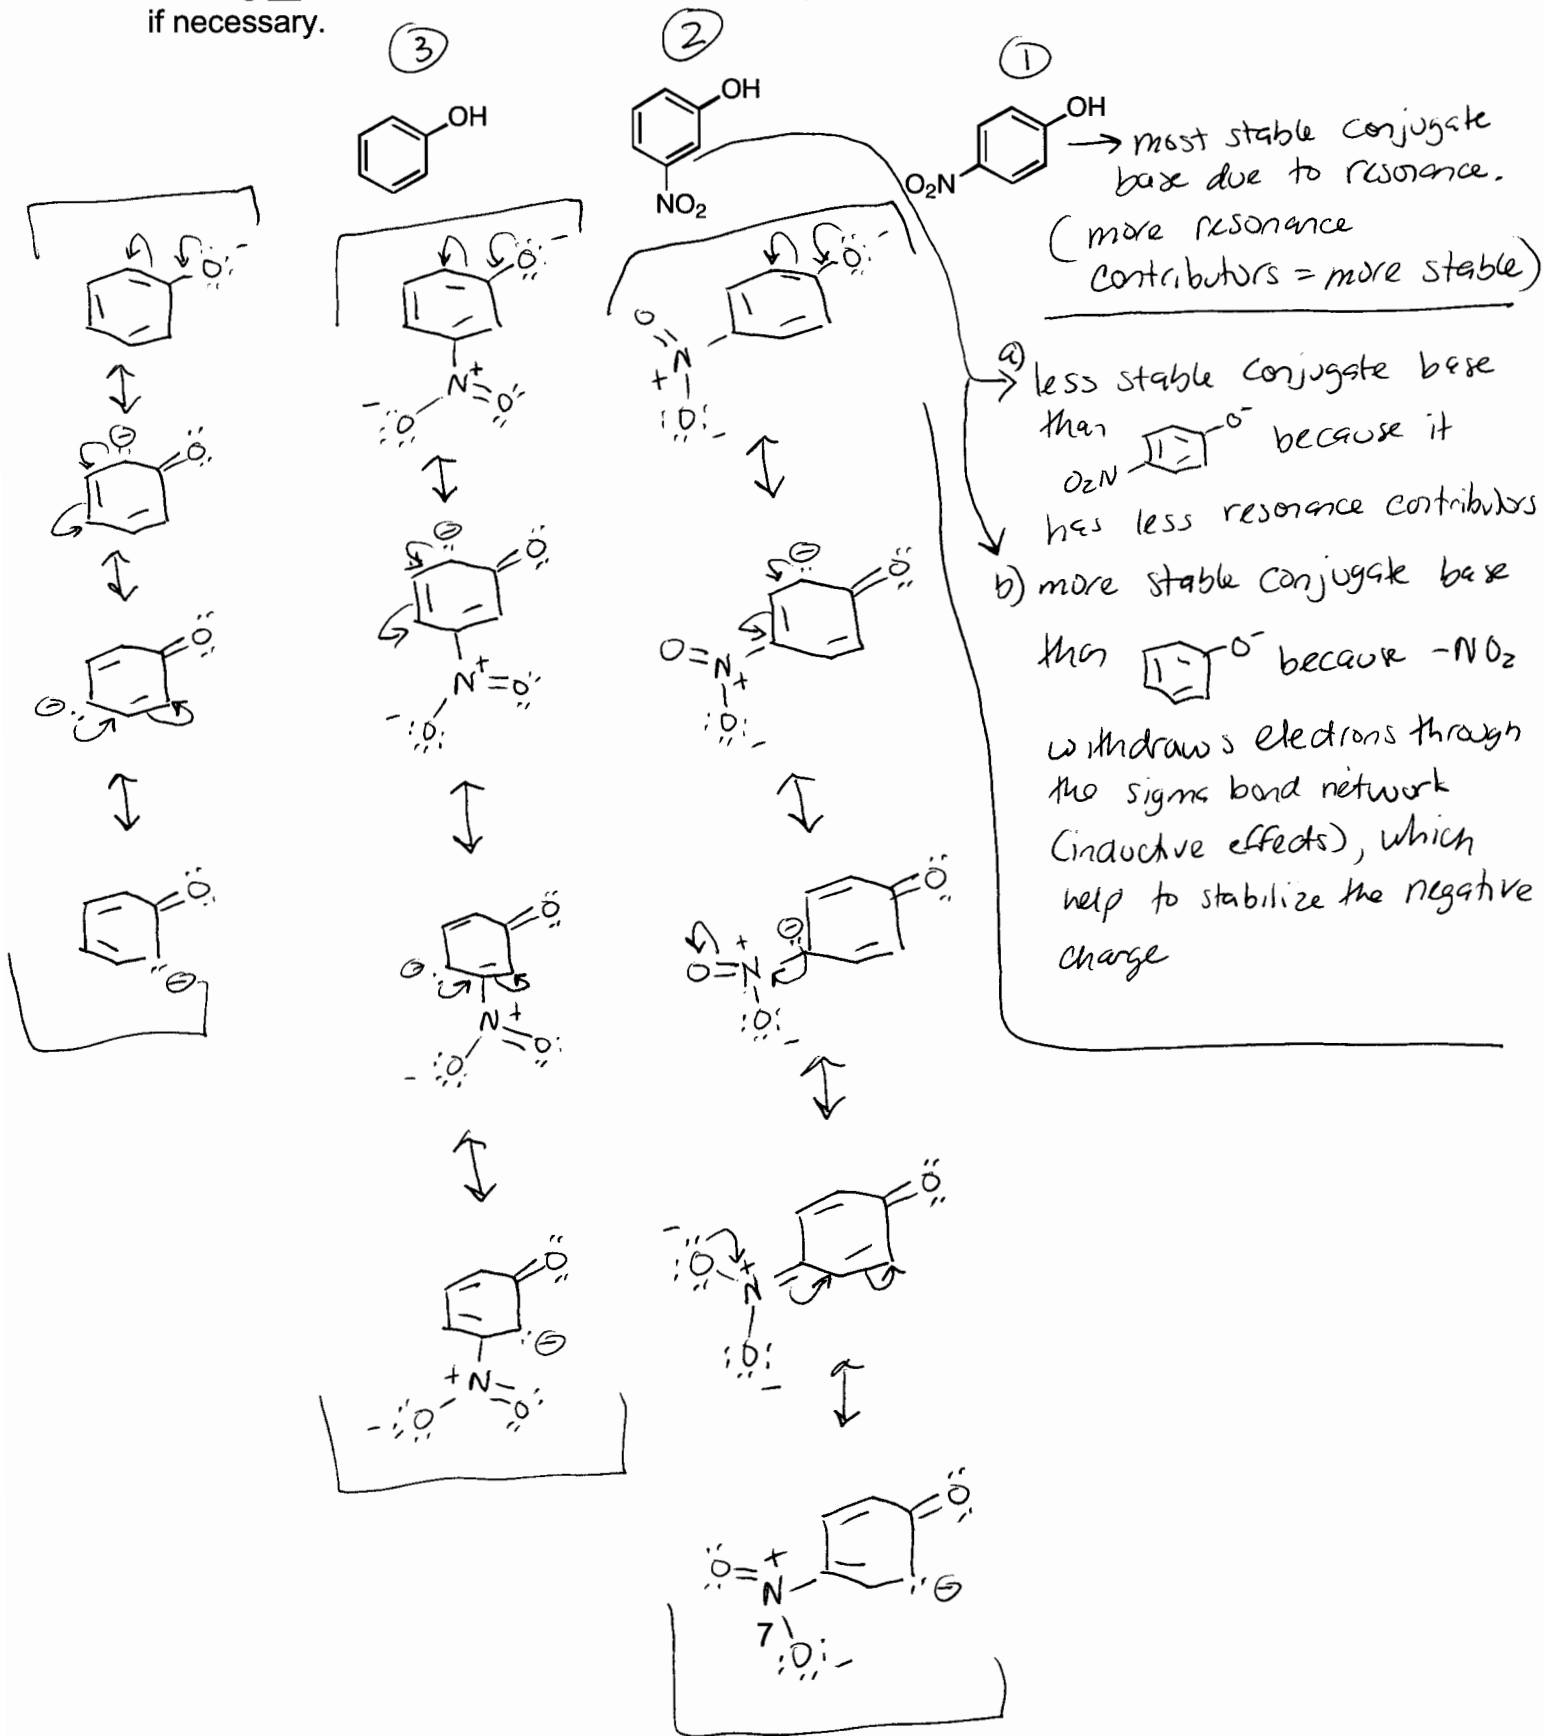 if necessary.
3
2
1
OH
NO2
OH
O2N
OH
→ most stable conjugate
base due to resonance.
(more resonance
contributors = more stable)
a) less stable conjugate base
than
O2N
O-
because it
has less resonance contributors
b) more stable conjugate base
than
O-
because -NO2
withdraws electrons through
the sigma bond network
(inductive effects), which
help to stabilize the negative
charge
7